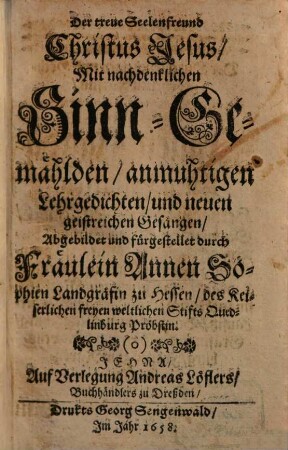 Der treue Seelenfreund
Christus Jesus/
Mit nachdenklichen
Sinn-Ge-
mählden/ anmuhtigen
Lehrgedichten/ und neuen
geistreichen Gesängen/
Abgebildet und fürgestellet durch
Fräulein Annen So-
phien Landgräfin zu Hessen/ des Kei-
serlichen freyen weltlichen Stifts Qued-
linburg Pröbstin.
(o)
JEHNA/
Auf Verlegung Andreas Löflers/
Buchhändlers zu Dreßden/
Drukts Georg Sengenwald/
Im Jahr 1658.